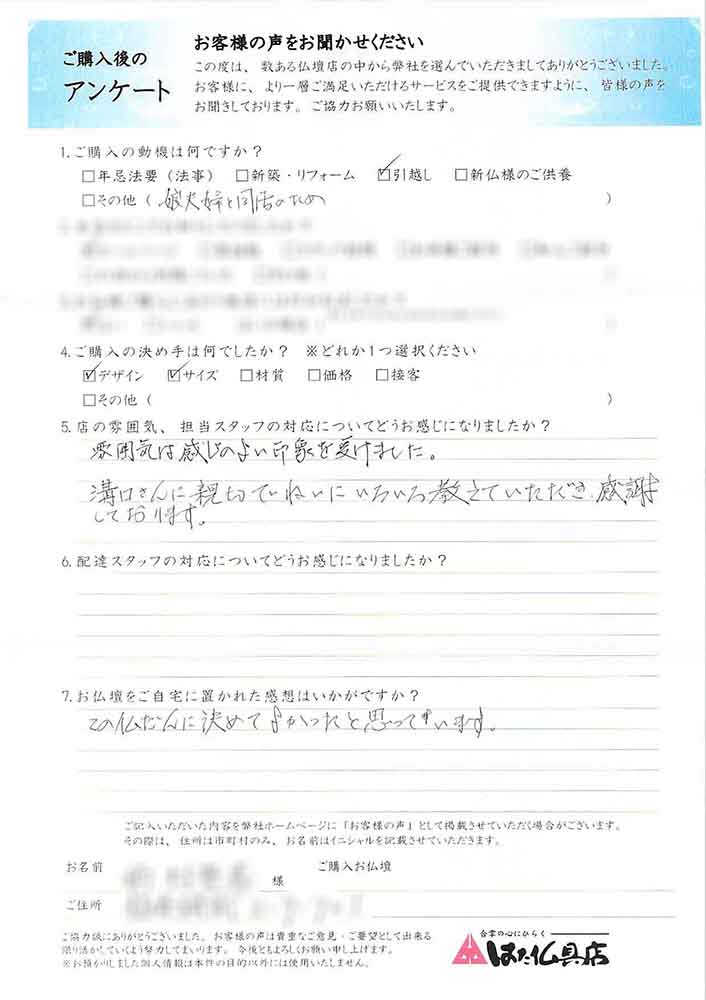 ご購入後の
アンケート
お客様の声をお聞かせください
この度は、数ある仏壇店の中から弊社を選んでいただきましてありがとうございました。
お客様に、より一層ご満足いただけるサービスをご提供できますように、皆様の声を
お聞きしております。ご協力お願いいたします。
1.ご購入の動機は何ですか?
□年忌法要(法事) □新築・リフォーム ☑引越し □新仏様のご供養
□その他( 娘夫婦と同居のため )
4.ご購入の決め手は何でしたか? ※どれか1つ選択ください
☑デザイン ☑サイズ □材質 □価格 □接客
□その他( )
5.店の雰囲気、担当スタッフの対応についてどうお感じになりましたか?
雰囲気は感じのよい印象を受けました。
溝口さんに親切ていねいにいろいろ教えていただき、感謝
しております。
6.配達スタッフの対応についてどうお感じになりましたか?
7.お仏壇をご自宅に置かれた感想はいかがですか?
この仏だんに決めてよかったと思っています。
ご記入いただいた内容を弊社ホームページに「お客様の声」として掲載させていただく場合がございます。
その際は、住所は市町村のみ、お名前はイニシャルを記載させていただきます。
お名前 様 ご購入お仏壇
ご住所
ご協力誠にありがとうございました。お客様の声は貴重なご意見・ご要望として出来る
限り活かしていくよう努力してまいります。今後ともよろしくお願い申し上げます。
※お預かりしました個人情報は本件の目的以外には使用いたしません。
合掌の心にひらく
はた仏具店